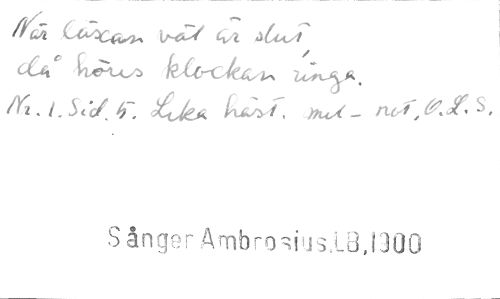 När läxan vät är slut,
då höres klockan ringa.
Nr. 1. Sid. 5. Leka häst. mel - not, O. L. S.
Sånger Ambrosius, LB, 1900